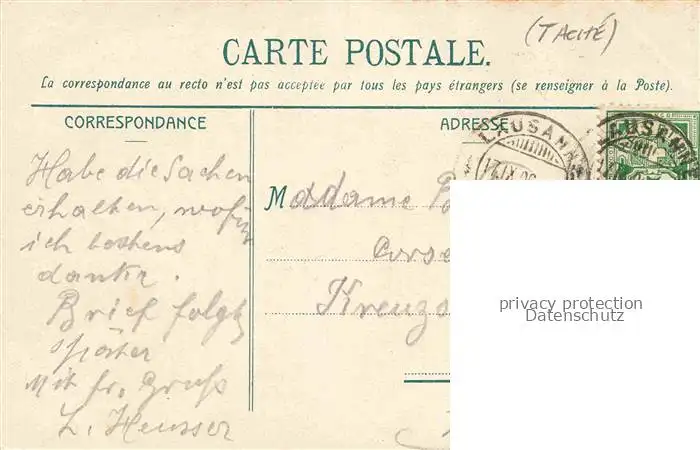 (TACITÉ)
CARTE POSTALE.
La correspondance au recto n'est pas acceptée par tous les pays étrangers (se renseigner à la Poste).
CORRESPONDANCE
ADRESSE
LAUSANNE
LAUSANNE
Habe die Sachen
erhalten, wofür
ich bestens
danke.
Brief folgt
später
Mit fr. Gruß
L. Heusser
Madame
Corse
Kreuz
privacy protection
Datenschutz